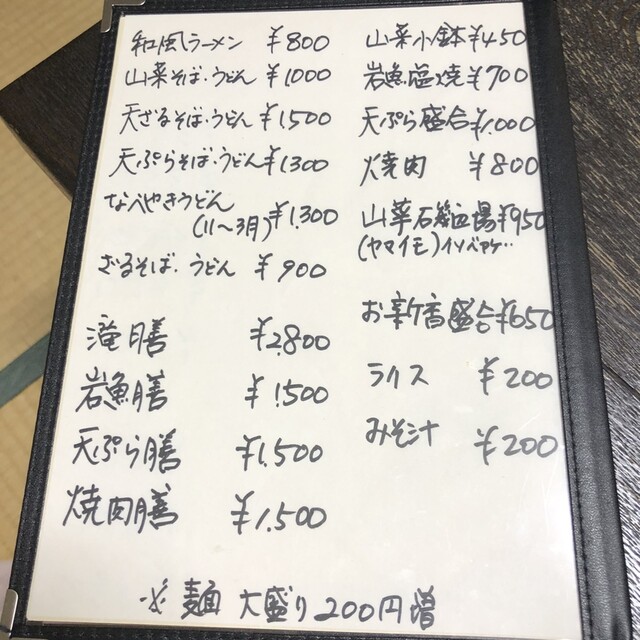 和風ラーメン ¥800
山菜そば・うどん ¥1000
天ざるそば・うどん ¥1500
天ぷらそば・うどん ¥1300
なべやきうどん
(11〜3月) ¥1.300
ざるそば・うどん ¥900
滝膳 ¥2.800
岩魚膳 ¥1.500
天ぷら膳 ¥1.500
焼肉膳 ¥1.500
山菜小鉢 ¥450
岩魚塩焼 ¥700
天ぷら盛合 ¥1.000
焼肉 ¥800
¥950
(ヤマイモ)イソベアゲ…
お新香盛合 ¥650
ライス ¥200
みそ汁 ¥200
※ 麺 大盛り 200円増